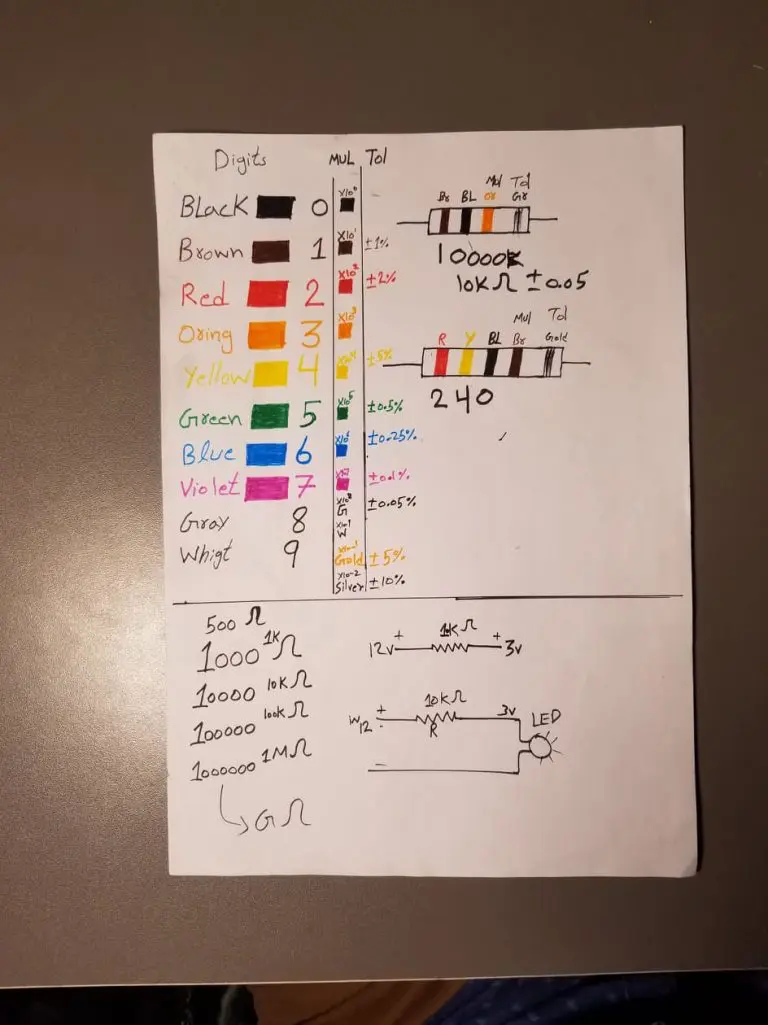 Digits MUL Tol
BLack 0 X10⁰
Brown 1 X10¹ ±1%
Red 2 X10² ±2%
Oring 3 X10³
Yellow 4 X10⁴ ±5%
Green 5 X10⁵ ±0.5%
Blue 6 ±0.25%
Violet 7 ±0.1%
Gray 8 X10⁸ G ±0.05%
Whigt 9 W
X10-1 Gold ±5%
X10-2 Silver ±10%
Mul Tol
Br BL or Gr
10000
10KΩ ±0.05
Mul Tol
R Y BL Br Gold
240
500 Ω
1000 1KΩ
10000 10KΩ
100000 100kΩ
1000000 1MΩ
GΩ
1KΩ
12v + + 3v
10KΩ
12 + - R 3v LED